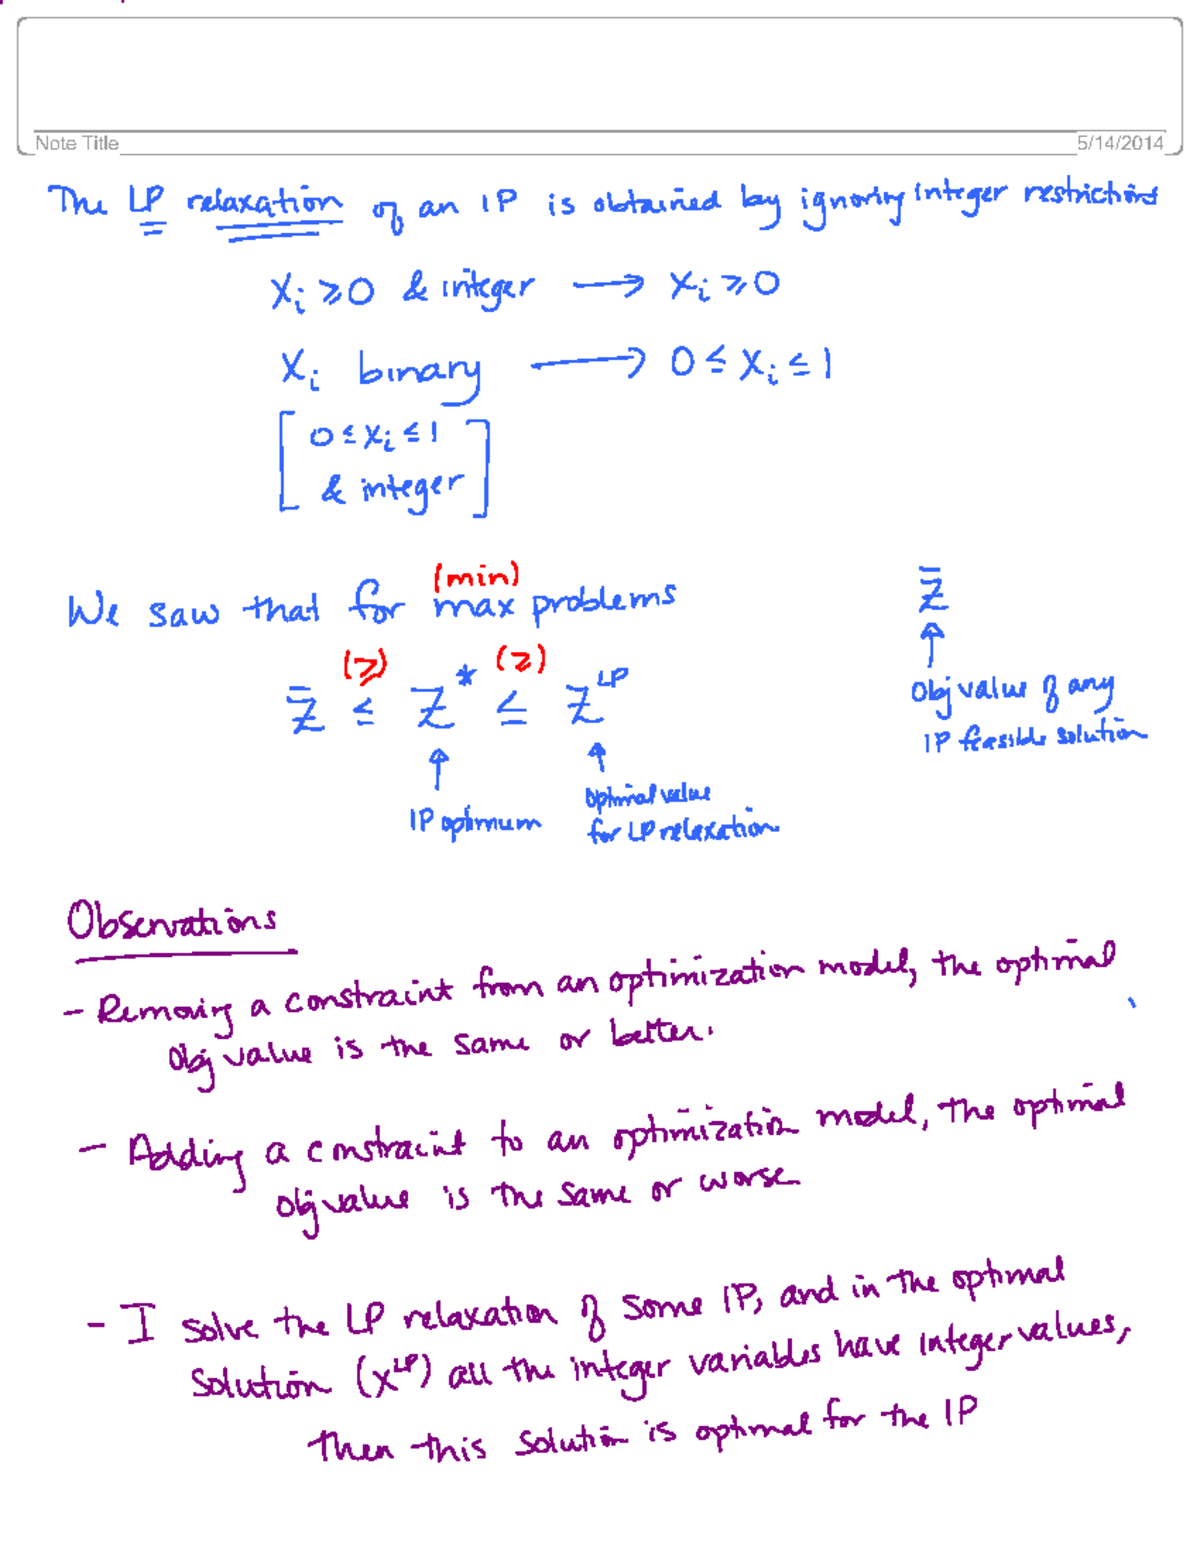 Note Title
5/14/2014
The LP relaxation of an IP is obtained by ignoring integer restrictions
Xᵢ ≥ 0 & integer → Xᵢ ≥ 0
Xᵢ binary → 0 ≤ Xᵢ ≤ 1
[ 0 ≤ Xᵢ ≤ 1
& integer ]
(min)
We saw that for max problems
(≥) (≥)
Z̄ ≤ Z* ≤ Z^LP
↑ IP optimum
↑ optimal value
for LP relaxation
Z̄
↑
Obj value of any
IP feasible solution
Observations
- Removing a constraint from an optimization model, the optimal
obj value is the same or better.
- Adding a constraint to an optimization model, the optimal
obj value is the same or worse
- I solve the LP relaxation of some IP, and in the optimal
solution (x^LP) all the integer variables have integer values,
then this solution is optimal for the IP